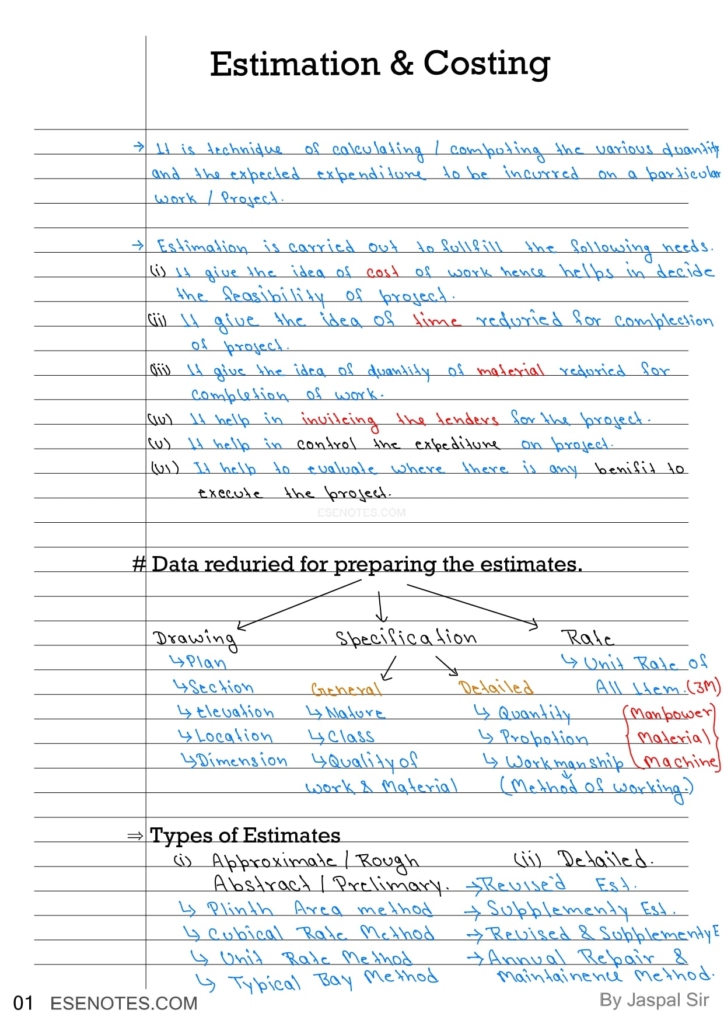 Estimation & Costing
→ It is technique of calculating / computing the various quantity
and the expected expenditure to be incurred on a particular
work / Project.
→ Estimation is carried out to fullfill the following needs.
(i) It give the idea of cost of work hence helps in decide
the feasibility of project.
(ii) It give the idea of time reduried for complection
of project.
(iii) It give the idea of quantity of material reduried for
completion of work.
(iv) It help in inviteing the tenders for the project.
(v) It help in control the expediture on project.
(vi) It help to evaluate where there is any benifit to
execute the project.
ESENOTES.COM
# Data reduried for preparing the estimates.
Drawing Specification Rate
↳Plan ↳ Unit Rate of
↳Section General Detailed All Item. (3M)
↳Elevation ↳Nature ↳ Quantity (Manpower)
↳Location ↳Class ↳ Propotion Material
↳Dimension ↳Quality of ↳ Workmanship Machine
work & Material (Method of working.)
⇒ Types of Estimates
(i) Approximate / Rough (ii) Detailed.
Abstract / Prelimary. →Revise'd Est.
↳ Plinth Area method →Supplementy Est.
↳ Cubical Rate Method →Revised & Supplementy E
↳ Unit Rate Method →Annual Repair &
↳ Typical Bay Method Maintainence Method.
01 ESENOTES.COM By Jaspal Sir